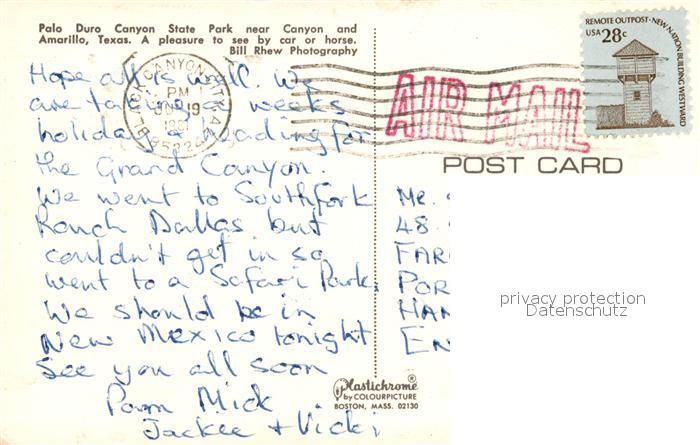 Palo Duro Canyon State Park near Canyon and
Amarillo, Texas. A pleasure to see by car or horse.
Bill Rhew Photography
Hope all is well. We
are taking a weeks
holiday & heading for
the Grand Canyon.
We went to Southfork
Ranch Dallas but
couldn't get in so
went to a Safari Park.
We should be in
New Mexico tonight
See you all soon
Pam Mick
Jackie + Vicki
BLACK CANYON STA
PM
JUN 19
AIR MAIL
REMOTE OUTPOST · NEW NATION BUILDING WESTWARD
USA 28c
POST CARD
Mr.
48.
FAR
POR
HAN
EN
privacy protection
Datenschutz
Plastichrome®
by COLOURPICTURE
BOSTON, MASS. 02130